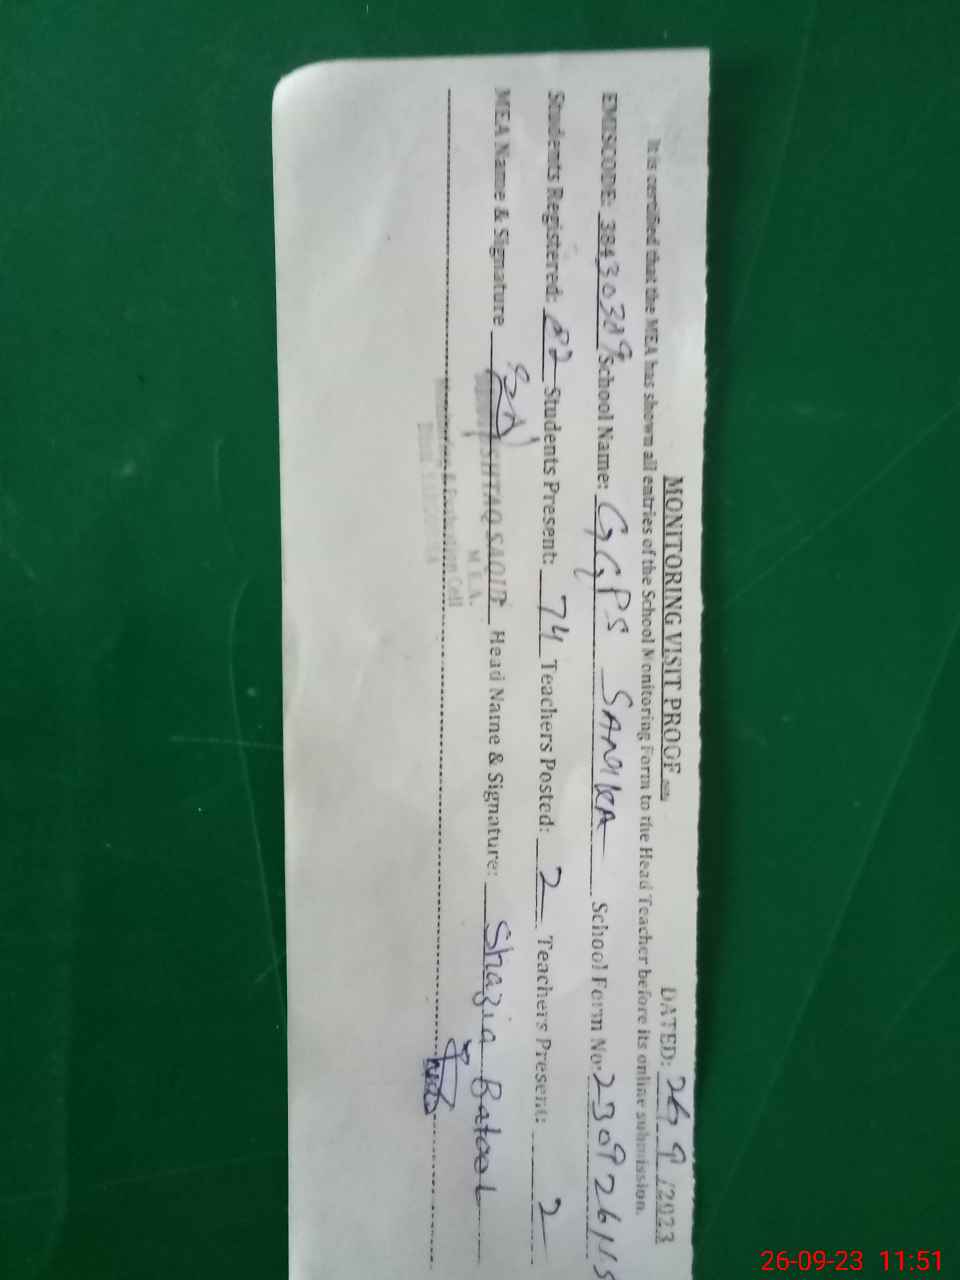 MONITORING VISIT PROOF DATED: 26 9 /2023
It is certified that the MEA has shown all entries of the School Monitoring Form to the Head Teacher before its online submission.
EMISCODE: 38430389 School Name: GGPS SAMKA School Form No: 230926N5
Students Registered: 82 Students Present: 74 Teachers Posted: 2 Teachers Present: 2
MEA Name & Signature SHTAQ SAQIB Head Name & Signature: Shazia Batool
M.E.A.
Monitoring & Evaluation Cell
26-09-23 11:51